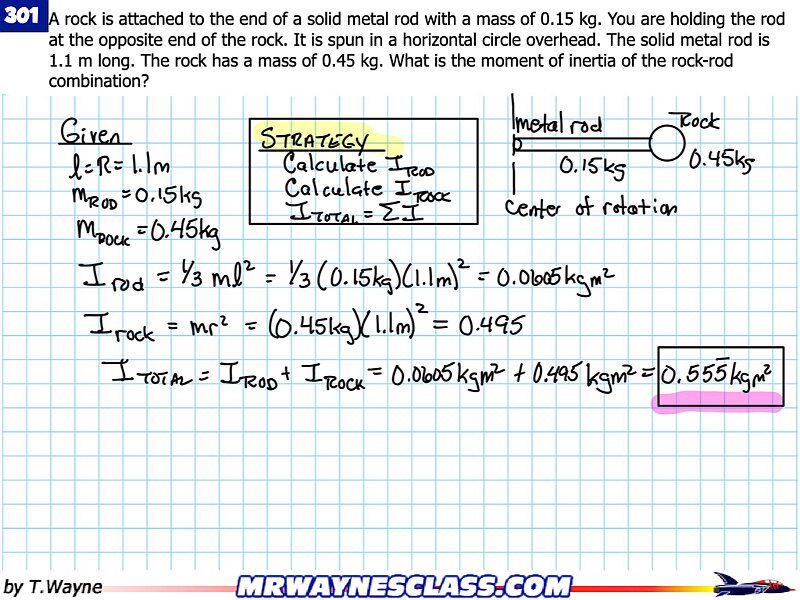 301
A rock is attached to the end of a solid metal rod with a mass of 0.15 kg. You are holding the rod
at the opposite end of the rock. It is spun in a horizontal circle overhead. The solid metal rod is
1.1 m long. The rock has a mass of 0.45 kg. What is the moment of inertia of the rock-rod
combination?
Given
l=R=1.1m
mROD=0.15kg
mROCK=0.45kg
STRATEGY
Calculate IROD
Calculate IROCK
ITOTAL = ΣI
metal rod
Rock
0.15kg
0.45kg
center of rotation
Irod = 1/3 ml² = 1/3 (0.15kg)(1.1m)² = 0.0605kgm²
Irock = mr² = (0.45kg)(1.1m)² = 0.495
ITOTAL = IROD + IROCK = 0.0605kgm² + 0.495kgm² = 0.555kgm²
by T.Wayne
MRWAYNESCLASS.COM